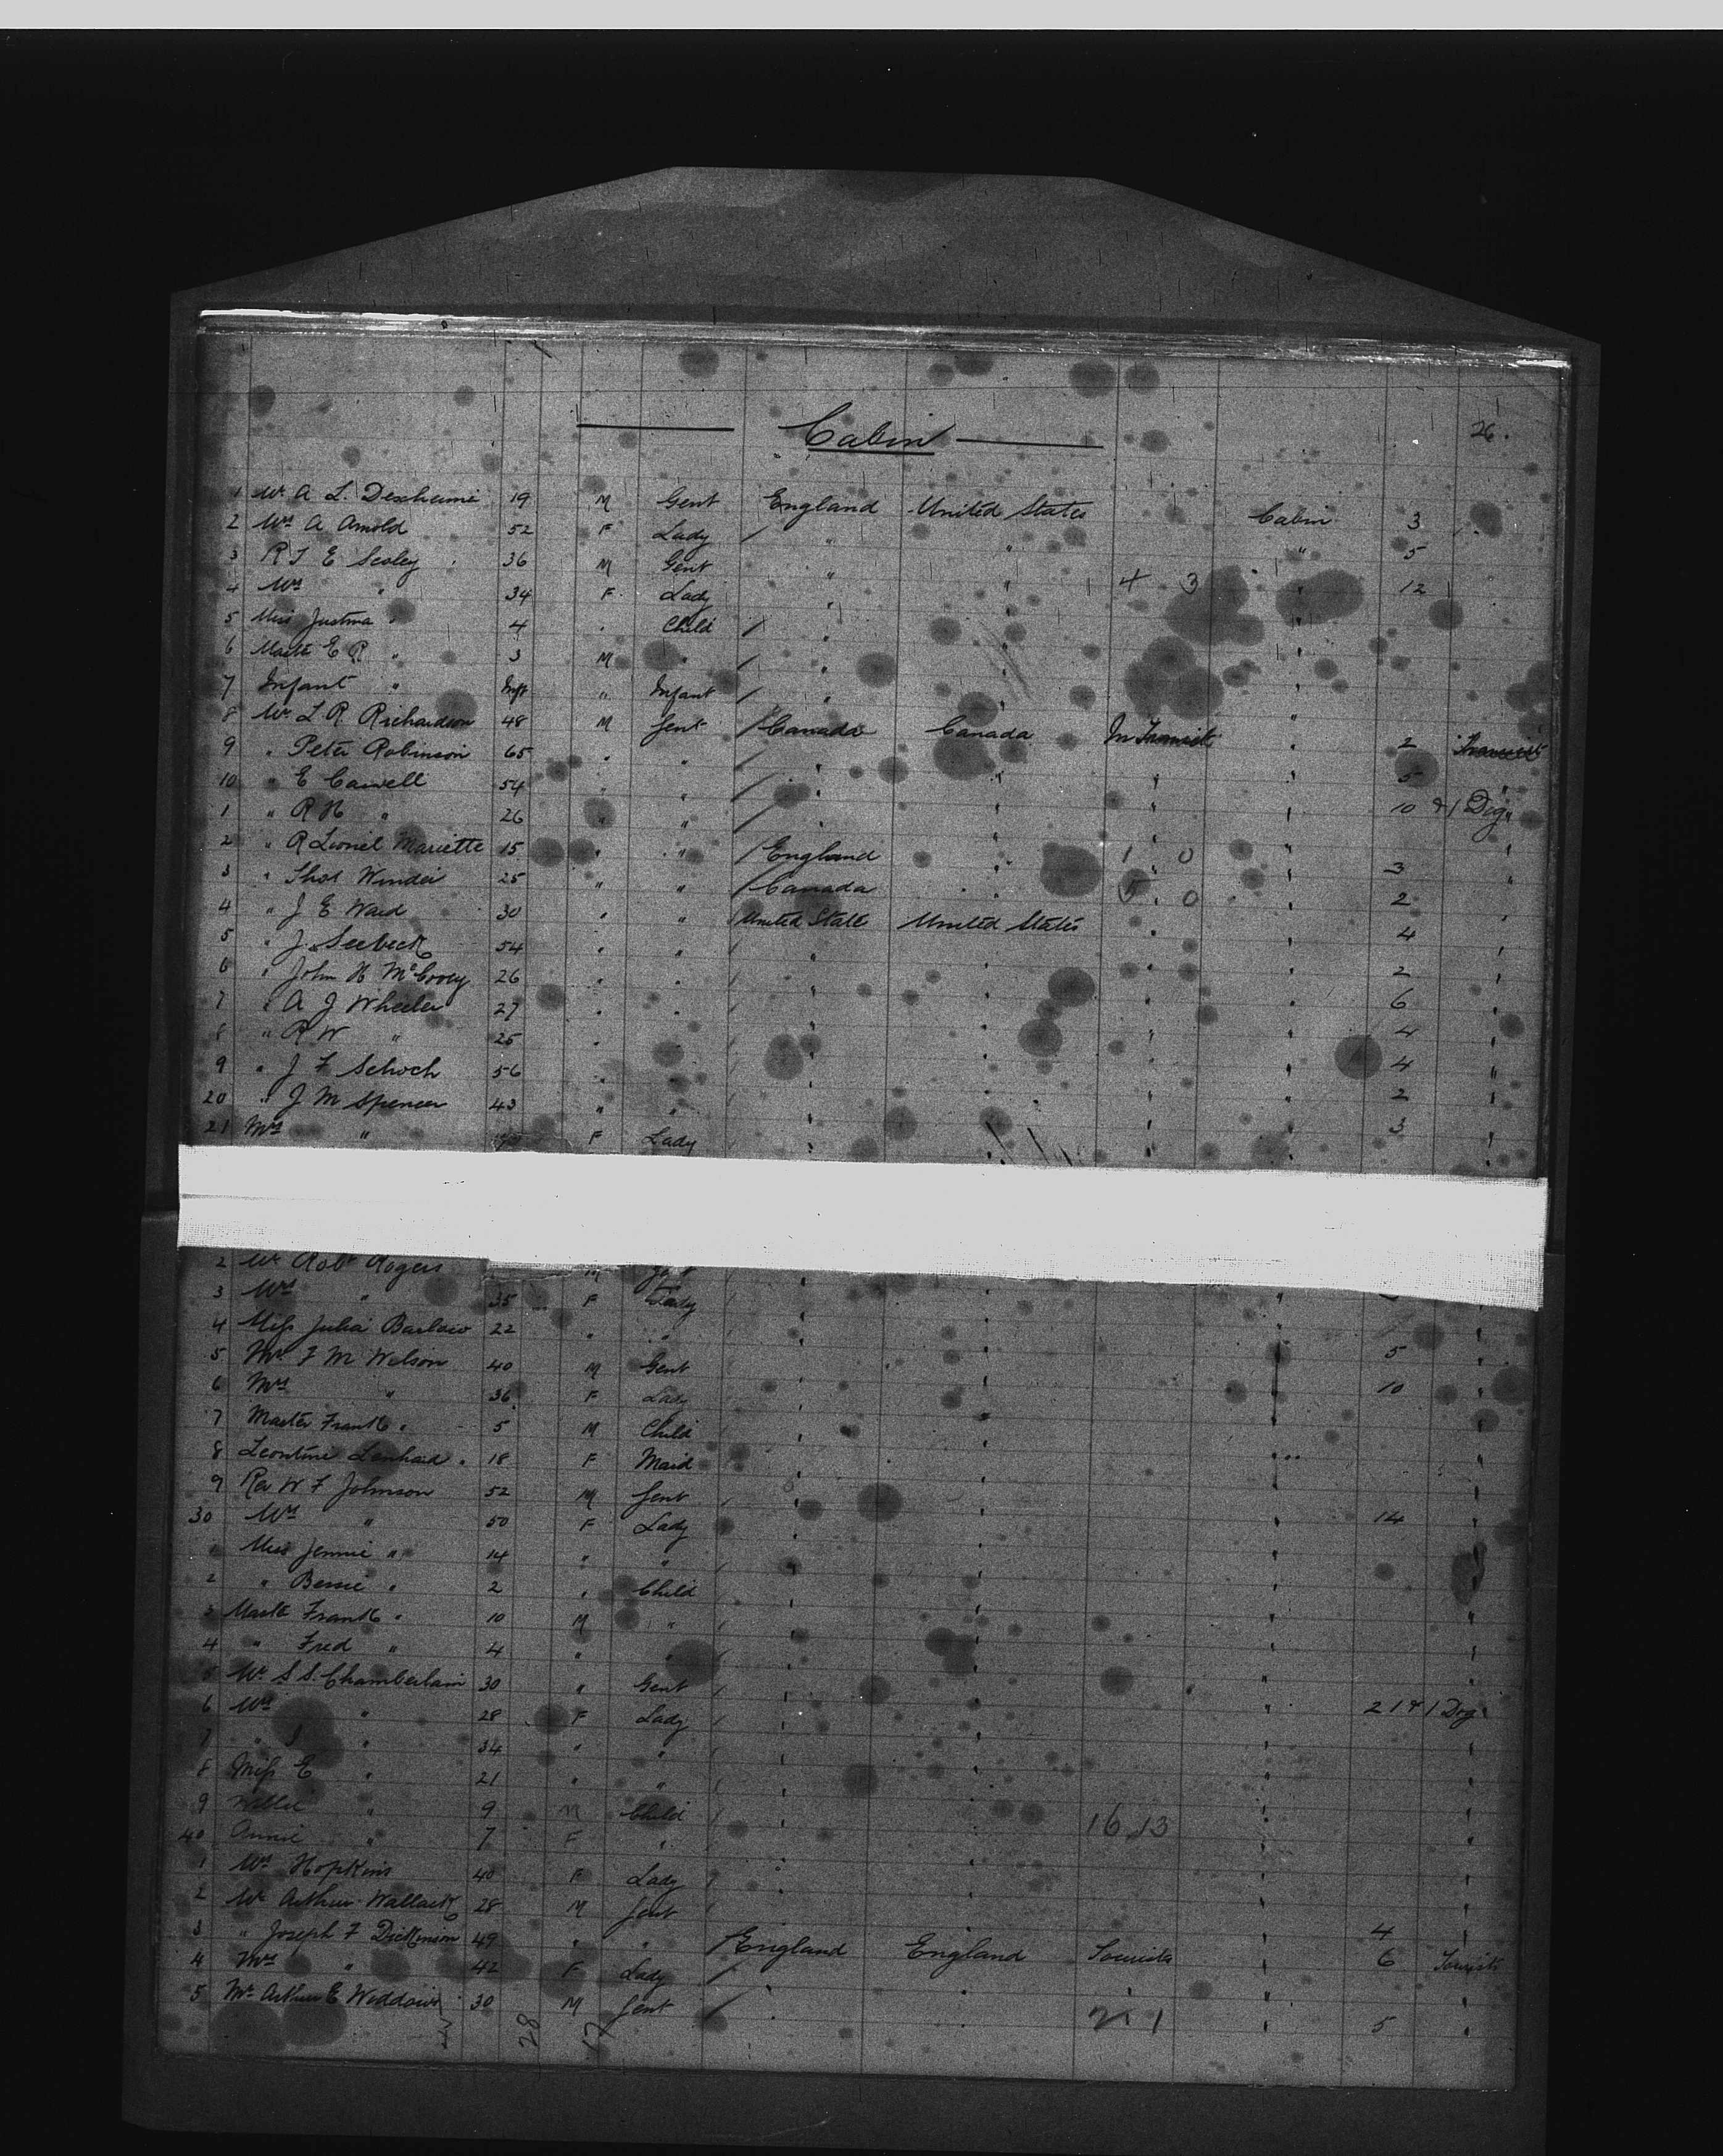 Cabin
26.
1 Mr A L. Dexheimé 19 M Gent England United States Cabin 3
2 Mrs A Arnold 52 F Lady / " " " 5
3 R T E Scoley 36 M Gent " " 4 3 " 12
4 Mrs " 34 F Lady " "
5 Miss Justina " 4 Child / "
6 Maste E R " 3 M " / "
7 Infant " Inft " Infant / " "
8 Mr L R Richardson 48 M Gent / Canada Canada In Transit " 2
9 " Peter Robinson 65 " " / " " " " 5 "
10 " E Carwell 54 " " / " " " " 10 & 1 Dog "
1 " R H " 26 " " / " " "
2 " R Lionel Mariette 15 " " / England " 1 0 " 3 "
3 " Thos Winder 25 " " / Canada " 5 0 " 2 "
4 " J E Ward 30 " " United State United States " " 4 "
5 " J. Seebeck 54 " " " " " 2 "
6 " John H McCooey 26 " " " " " 6 "
7 " A J Wheeler 27 " " " " " 4 "
8 " R W " 25 " " " " " 4 "
9 " J F Schoch 56 " " " " " 2 "
20 " J M Spencer 43 " " " " " 3 "
21 Mrs " F Lady " " "
2 Mr Robt Rogers M
3 Mrs " 35 F Lady " " "
4 Miss Julia Barlow 22 " " " " " 5 "
5 Mr F M Wilson 40 M Gent " " " 10 "
6 Mrs " 36 F Lady " " "
7 Master Frank " 5 M Child " " "
8 Leontine Lenhard 18 F Maid " " "
9 Rev W F Johnson 52 M Gent " " " 14 "
30 Mrs " 50 F Lady " " "
1 Miss Jennie " 14 " " " " "
2 " Bessie " 2 " Child " " "
3 Maste Frank " 10 M " " " "
4 " Fred " 4 " " " " "
5 Mr S S. Chamberlain 30 " Gent " " " 21 & 1 Dog "
6 Mrs " 28 F Lady " " "
7 " " 34 " " " " "
8 Miss E " 21 " " " " "
9 Willie " 9 M Child " 16 13 " "
40 Annie " 7 F " " "
1 Mrs Hopkins 40 F Lady " "
2 Mr Arthur Wallack 28 M Gent " 4 "
3 " Joseph F Dickinson 49 " " / England England Tourists 6 Tourists
4 Mrs " 42 F Lady / " " " "
5 Mr Arthur E Weddows 30 M Gent / " 2 1 " 5 "
28 17